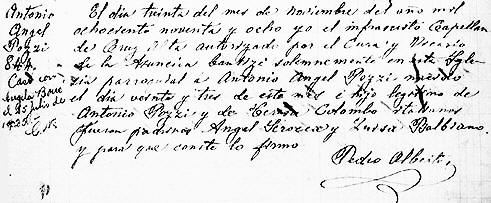 Antonio
Angel
Pozzi
Casó con
el 25 Julio de
1925.
El dia treinta del mes de Noviembre del año mil
ochocientos noventa y ocho yo el infrascrito Capellan
de Cruz Alta autorizado por el Cura y Vicario
de la Asuncion bautizé solemnemente en esta Igle-
zia parroquial a Antonio Angel Pozzi nacido
el dia veinte y tres de este mes é hijo legitimo de
Antonio Pozzi y de Teresa Colombo italianos
fueron padrinos Angel y Luisa Balbiano,
y para que conste lo firmo
Pedro Alberti